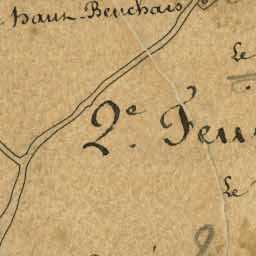 haut-Beuchais
Le
2e. Feu
Le
2